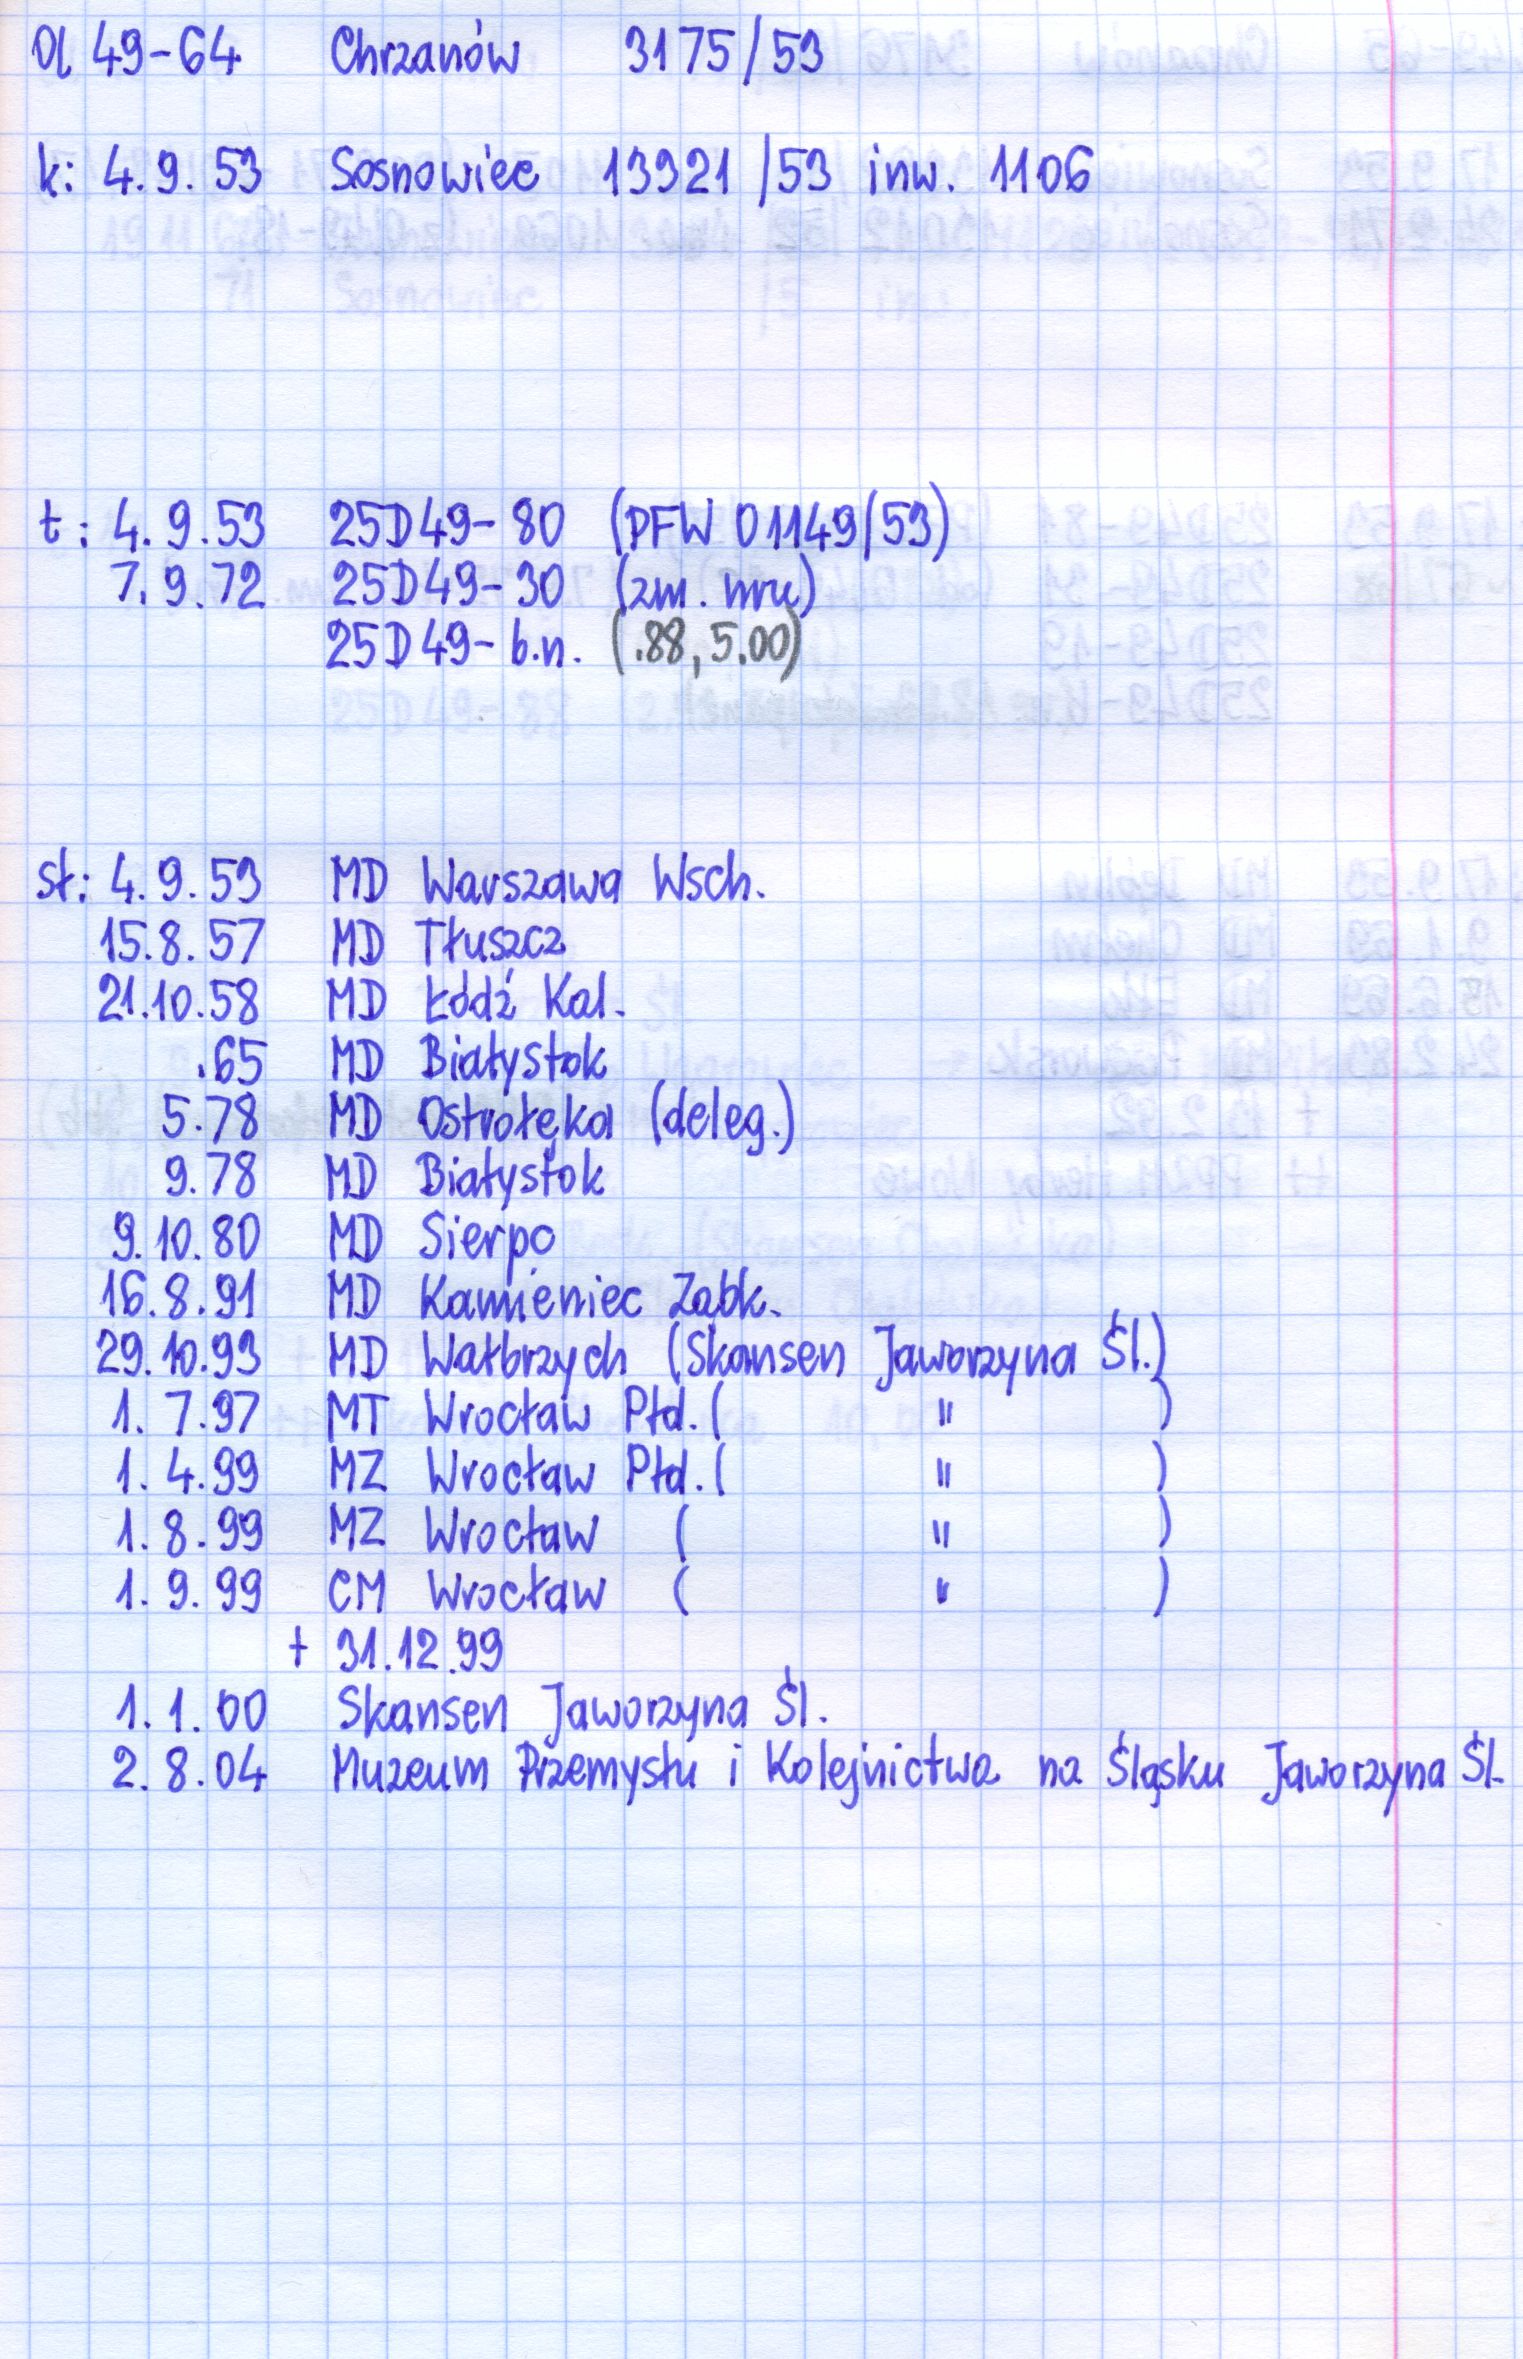 Ol 49-64 Chrzanów 3175/53
k: 4.9.53 Sosnowiec 13921/53 inw. 1106
t: 4.9.53 25D49-80 (PFW 01149/53)
7.9.72 25D49-30 (zm. nru)
25D49-b.n. (.88, 5.00)
st: 4.9.53 MD Warszawa Wsch.
15.8.57 MD Tłuszcz
21.10.58 MD Łódź Kal.
.65 MD Białystok
5.78 MD Ostrołęka (deleg.)
9.78 MD Białystok
9.10.80 MD Sierpc
16.8.91 MD Kamieniec Ząbk.
29.10.93 MD Wałbrzych (Skansen Jaworzyna Śl.)
1.7.97 MT Wrocław Płd. ( " )
1.4.99 MZ Wrocław Płd. ( " )
1.8.99 MZ Wrocław ( " )
1.9.99 CM Wrocław ( " )
+ 31.12.99
1.1.00 Skansen Jaworzyna Śl.
2.8.04 Muzeum Przemysłu i Kolejnictwa na Śląsku Jaworzyna Śl.